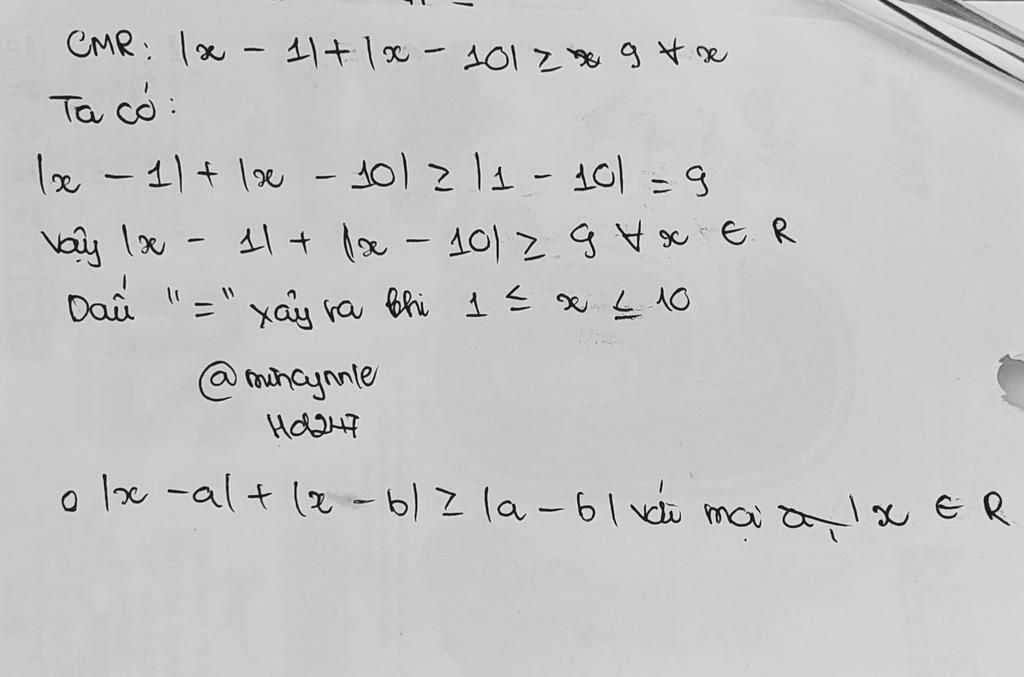 CMR: |x - 1| + |x - 10| ≥ 9 ∀ x
Ta có:
|x - 1| + |x - 10| ≥ |1 - 10| = 9
Vậy |x - 1| + |x - 10| ≥ 9 ∀ x ∈ R
Dấu "=" xảy ra khi 1 ≤ x ≤ 10
Hd247
o |x - a| + |x - b| ≥ |a - b| với mọi x ∈ R